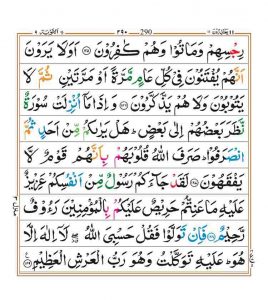 ۲۹۰ 290
رِجْسِهِمْ وَمَاتُوْا وَهُمْ كٰفِرُوْنَ اَوَلَا يَرَوْنَ
اَنَّهُمْ يُفْتَنُوْنَ فِيْ كُلِّ عَامٍ مَّرَّةً اَوْ مَرَّتَيْنِ ثُمَّ لَا
يَتُوْبُوْنَ وَلَا هُمْ يَذَّكَّرُوْنَ وَاِذَا مَاۤ اُنْزِلَتْ سُوْرَةٌ
نَّظَرَ بَعْضُهُمْ اِلٰى بَعْضٍ ؕ هَلْ يَرٰىكُمْ مِّنْ اَحَدٍ ثُمَّ
انْصَرَفُوْا ؕ صَرَفَ اللّٰهُ قُلُوْبَهُمْ بِاَنَّهُمْ قَوْمٌ لَّا
يَفْقَهُوْنَ لَقَدْ جَآءَكُمْ رَسُوْلٌ مِّنْ اَنْفُسِكُمْ عَزِيْزٌ
عَلَيْهِ مَا عَنِتُّمْ حَرِيْصٌ عَلَيْكُمْ بِالْمُؤْمِنِيْنَ رَءُوْفٌ
رَّحِيْمٌ فَاِنْ تَوَلَّوْا فَقُلْ حَسْبِيَ اللّٰهُ لَاۤ اِلٰهَ اِلَّا
هُوَ ؕ عَلَيْهِ تَوَكَّلْتُ وَهُوَ رَبُّ الْعَرْشِ الْعَظِيْمِ